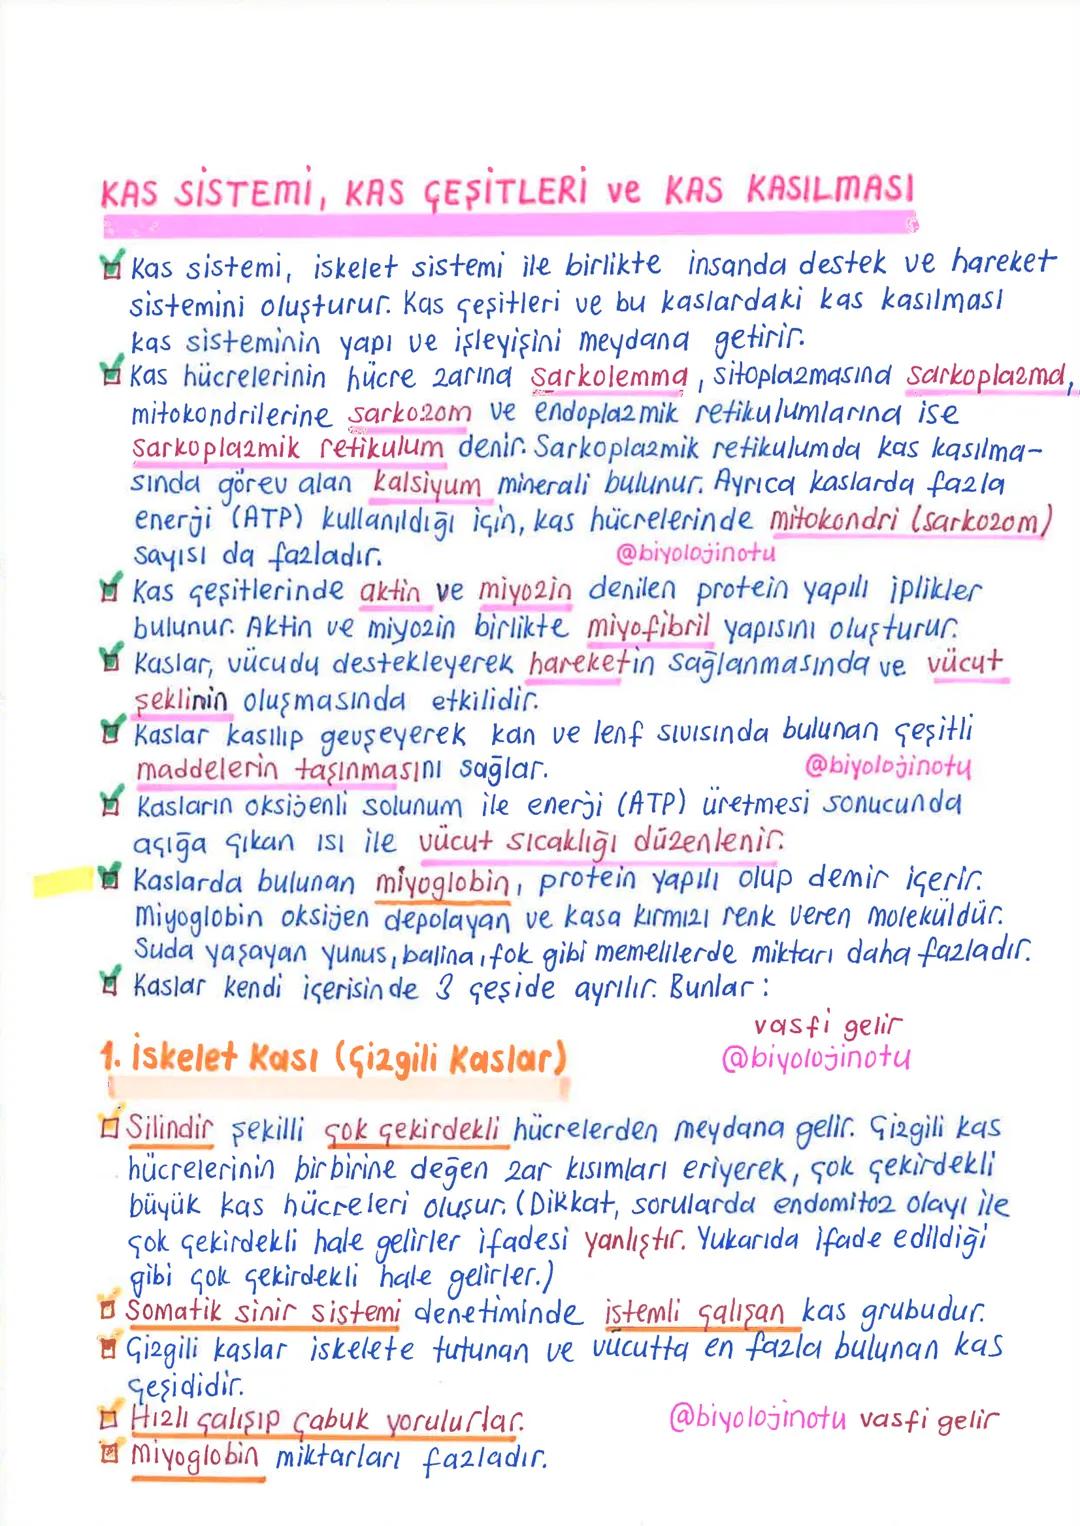 KAS SİSTEMİ, KAS ÇEŞİTLERİ ve KAS KASILMASI
Kas sistemi, iskelet sistemi ile birlikte insanda destek ve hareket
sistemini oluşturur. Kas çeşitleri ve bu kaslardaki kas kasılması
kas sisteminin yapı ve işleyişini meydana getirir.
Kas hücrelerinin hücre zarına sarkolemma, sitoplazmasına sarkoplazma,
mitokondrilerine sarkozom ve endoplazmik retikulumlarına ise
sarkoplazmik retikulum denir. Sarkoplazmik retikulumda kas kasılma-
sında görev alan kalsiyum minerali bulunur. Ayrıca kaslarda fazla
enerji (ATP) kullanıldığı için, kas hücrelerinde mitokondri (sarkozom)
sayısı da fazladır.
@biyolojinotu
Kas çeşitlerinde aktin ve miyozin denilen protein yapılı iplikler
bulunur. Aktin ve miyozin birlikte miyofibril yapısını oluşturur.
Kaslar, vücudu destekleyerek hareketin sağlanmasında ve vücut
şeklinin oluşmasında etkilidir.
Kaslar kasılıp gevşeyerek kan ve lenf sıvısında bulunan çeşitli
maddelerin taşınmasını sağlar.
@biyolojinotu
Kasların oksijenli solunum ile enerji (ATP) üretmesi sonucunda
açığa çıkan ısı ile vücut sıcaklığı düzenlenir.
Kaslarda bulunan miyoglobin, protein yapılı olup demir içerir.
Miyoglobin oksijen depolayan ve kasa kırmızı renk veren moleküldür.
Suda yaşayan yunus, balina, fok gibi memelilerde miktarı daha fazladır.
Kaslar kendi içerisinde 3 çeşide ayrılır. Bunlar:
vasfi gelir
@biyolojinotu
1. İskelet Kası (Çizgili Kaslar)
Silindir şekilli çok çekirdekli hücrelerden meydana gelir. Çizgili kas
hücrelerinin birbirine değen zar kısımları eriyerek, çok çekirdekli
büyük kas hücreleri oluşur. (Dikkat, sorularda endomitoz olayı ile
çok çekirdekli hale gelirler ifadesi yanlıştır. Yukarıda ifade edildiği
gibi çok çekirdekli hale gelirler.)
Somatik sinir sistemi denetiminde istemli çalışan kas grubudur.
Çizgili kaslar iskelete tutunan ve vücutta en fazla bulunan kas
çeşididir.
Hızlı çalışıp çabuk yorulurlar.
@biyolojinotu vasfi gelir
Miyoglobin miktarları fazladır.